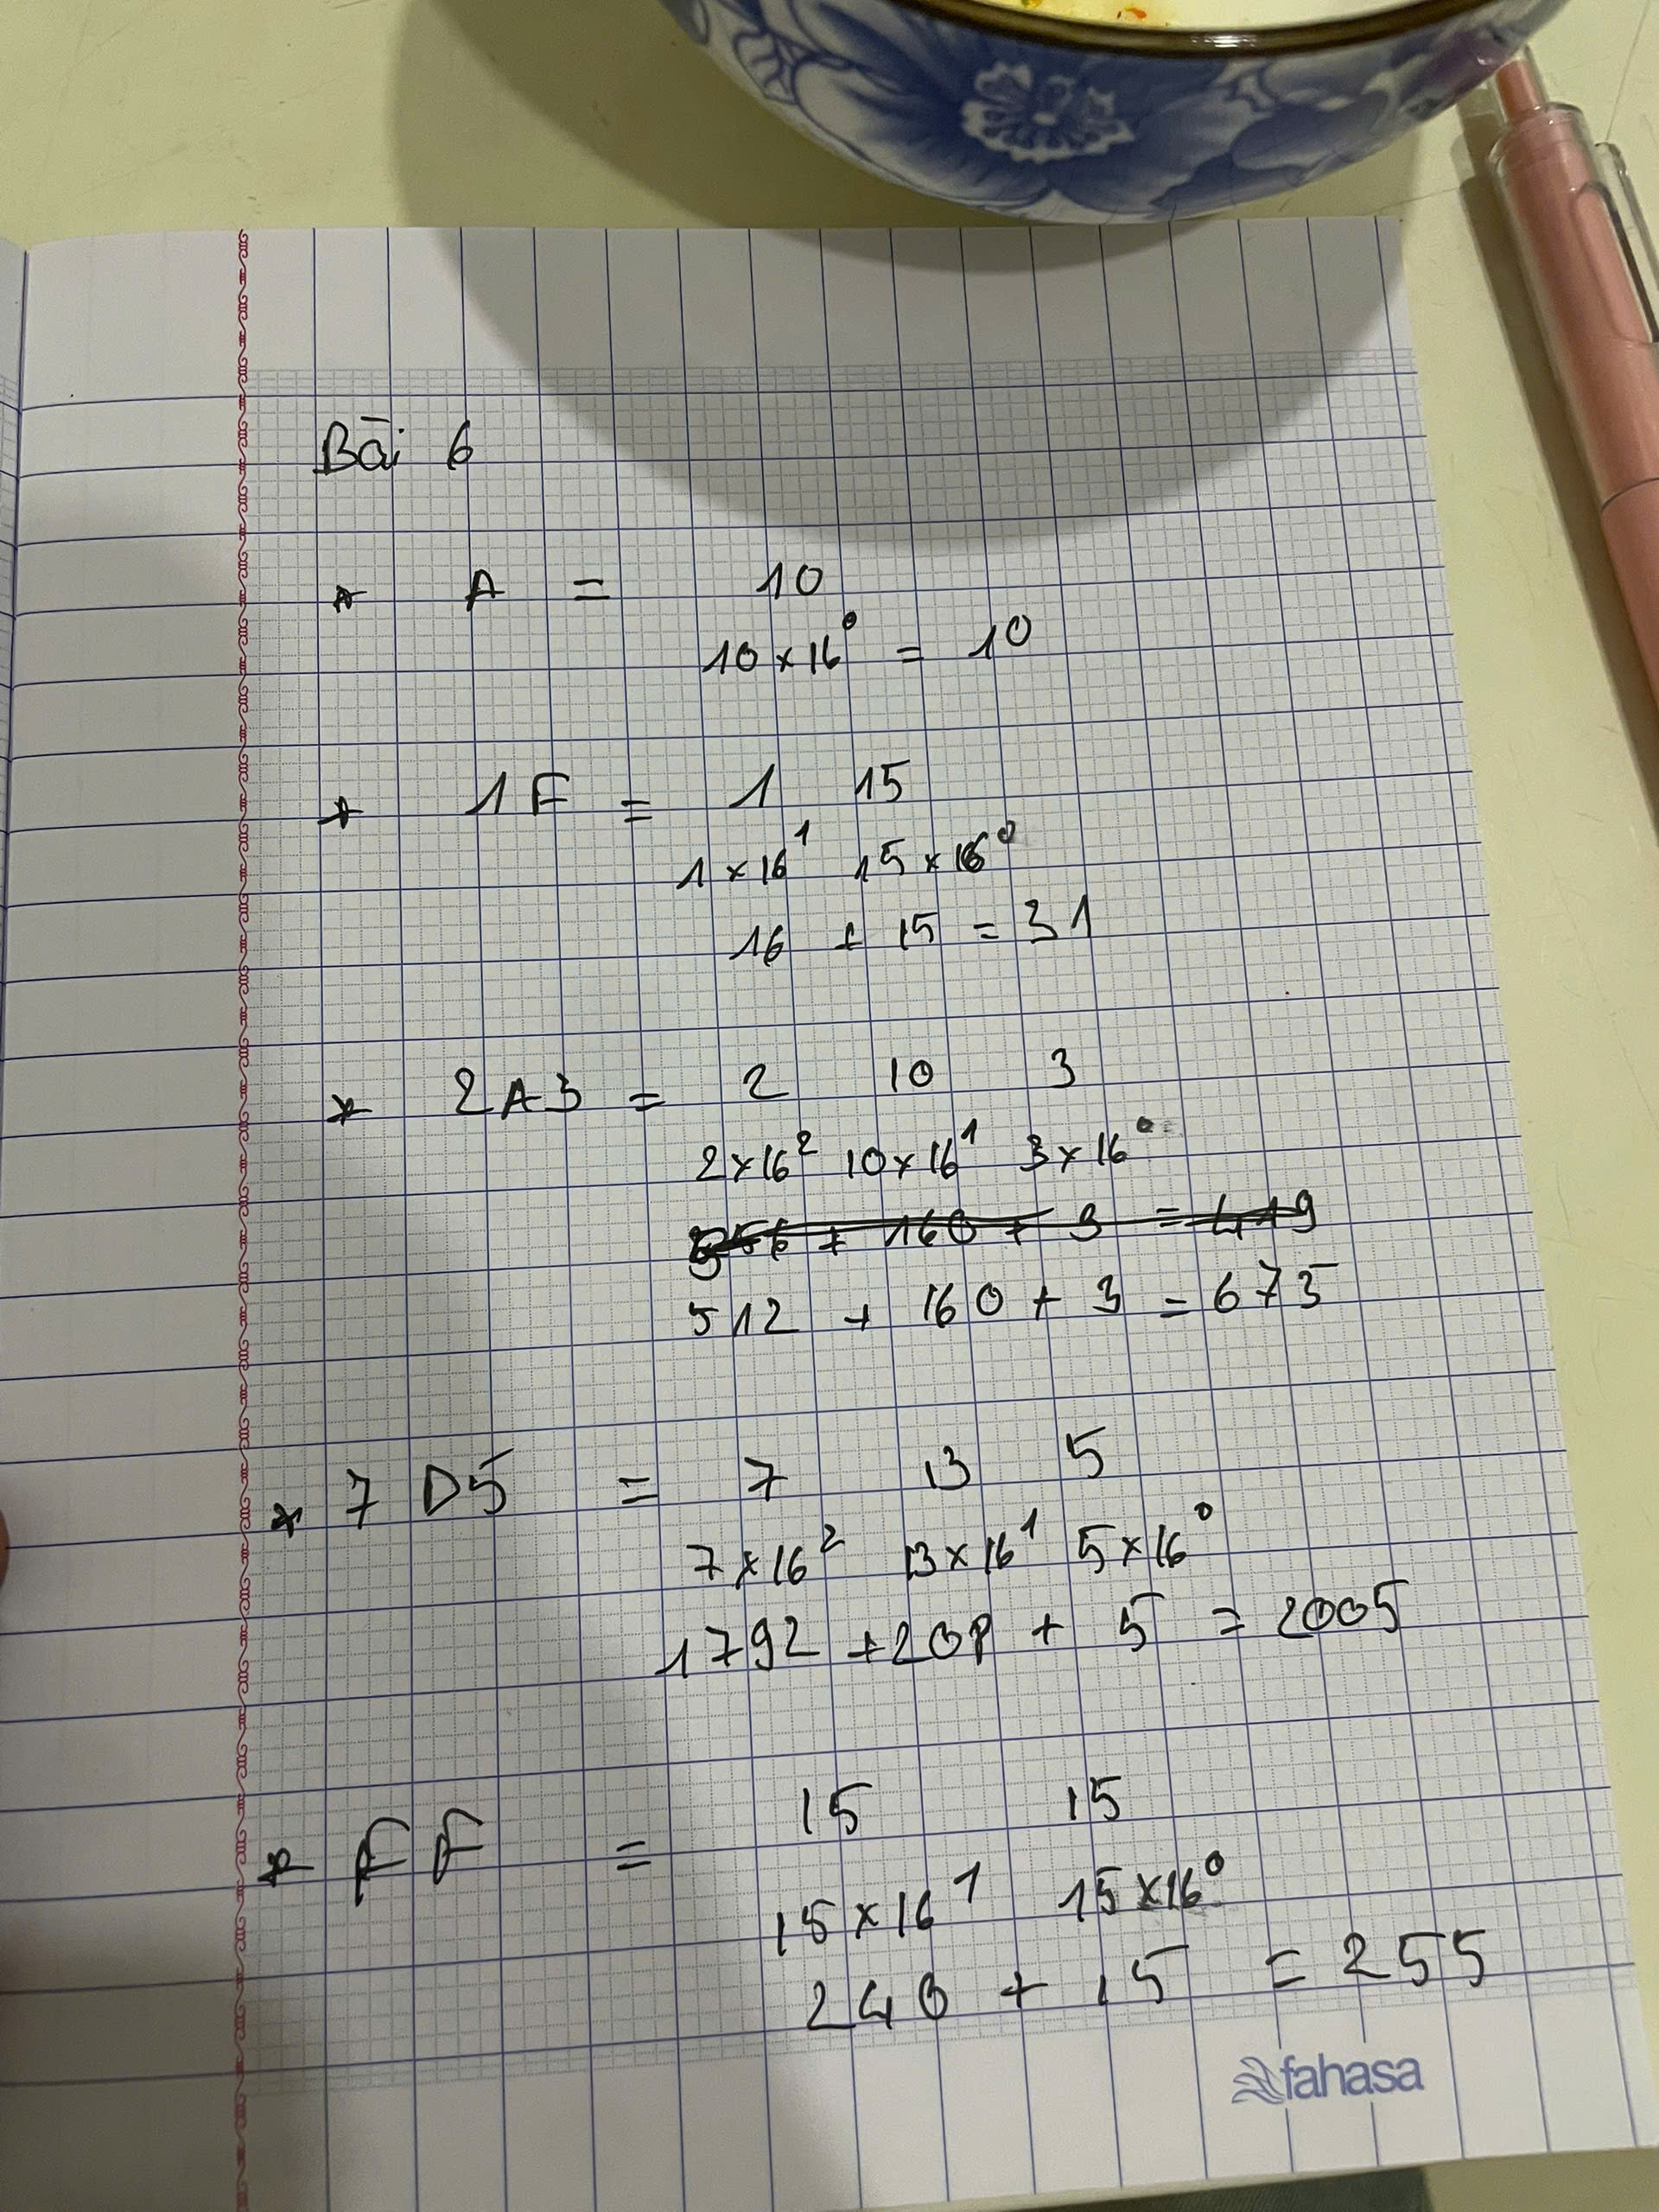 Bài 6
* A = 10
10 × 16⁰ = 10
* 1F = 1 15
1 × 16¹ 15 × 16⁰
16 + 15 = 31
* 2A3 = 2 10 3
2 × 16² 10 × 16¹ 3 × 16⁰
512 + 160 + 3 = 675
* 7D5 = 7 13 5
7 × 16² 13 × 16¹ 5 × 16⁰
1792 + 208 + 5 = 2005
* FF = 15 15
15 × 16¹ 15 × 16⁰
240 + 15 = 255
fahasa